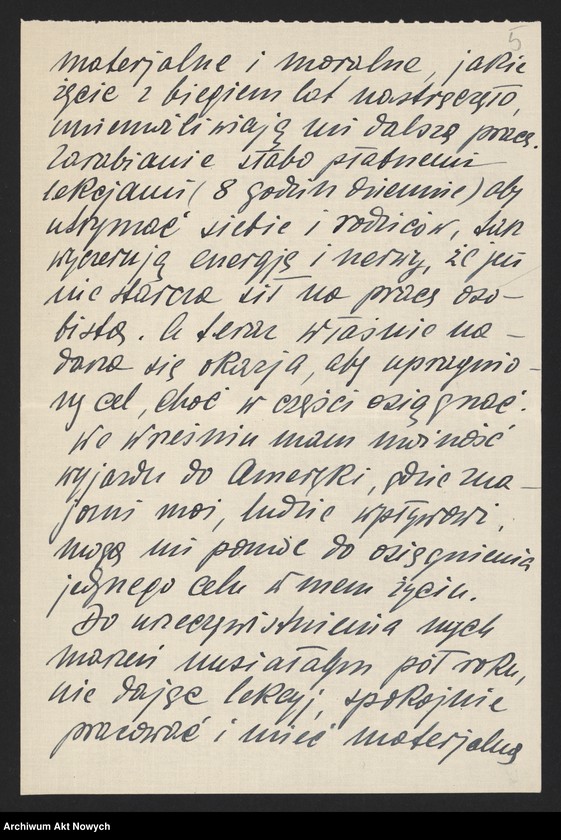 5
materjalne i moralne, jakie
życie z biegiem lat nastręczyło,
uniemożliwiają mi dalszą pracę.
Zarabianie słabo płatnemi
lekcjami (8 godzin dziennie) aby
utrzymać siebie i rodziców, tak
wyczerpują energję i nerwy, że już
nie starcza sił na pracę oso-
bistą. A teraz właśnie na-
darza się okazja, aby upragnio-
ny cel, choć w części osiągnąć.
We wrześniu mam możność
wyjazdu do Ameryki, gdzie zna-
jomi moi, ludzie wpływowi,
mogą mi pomóc do osiągnienia
jedynego celu w mem życiu.
Do urzeczywistnienia mych
marzeń musiałabym pół roku,
nie dając lekcyj, spokojnie
pracować i mieć materjalną
Archiwum Akt Nowych